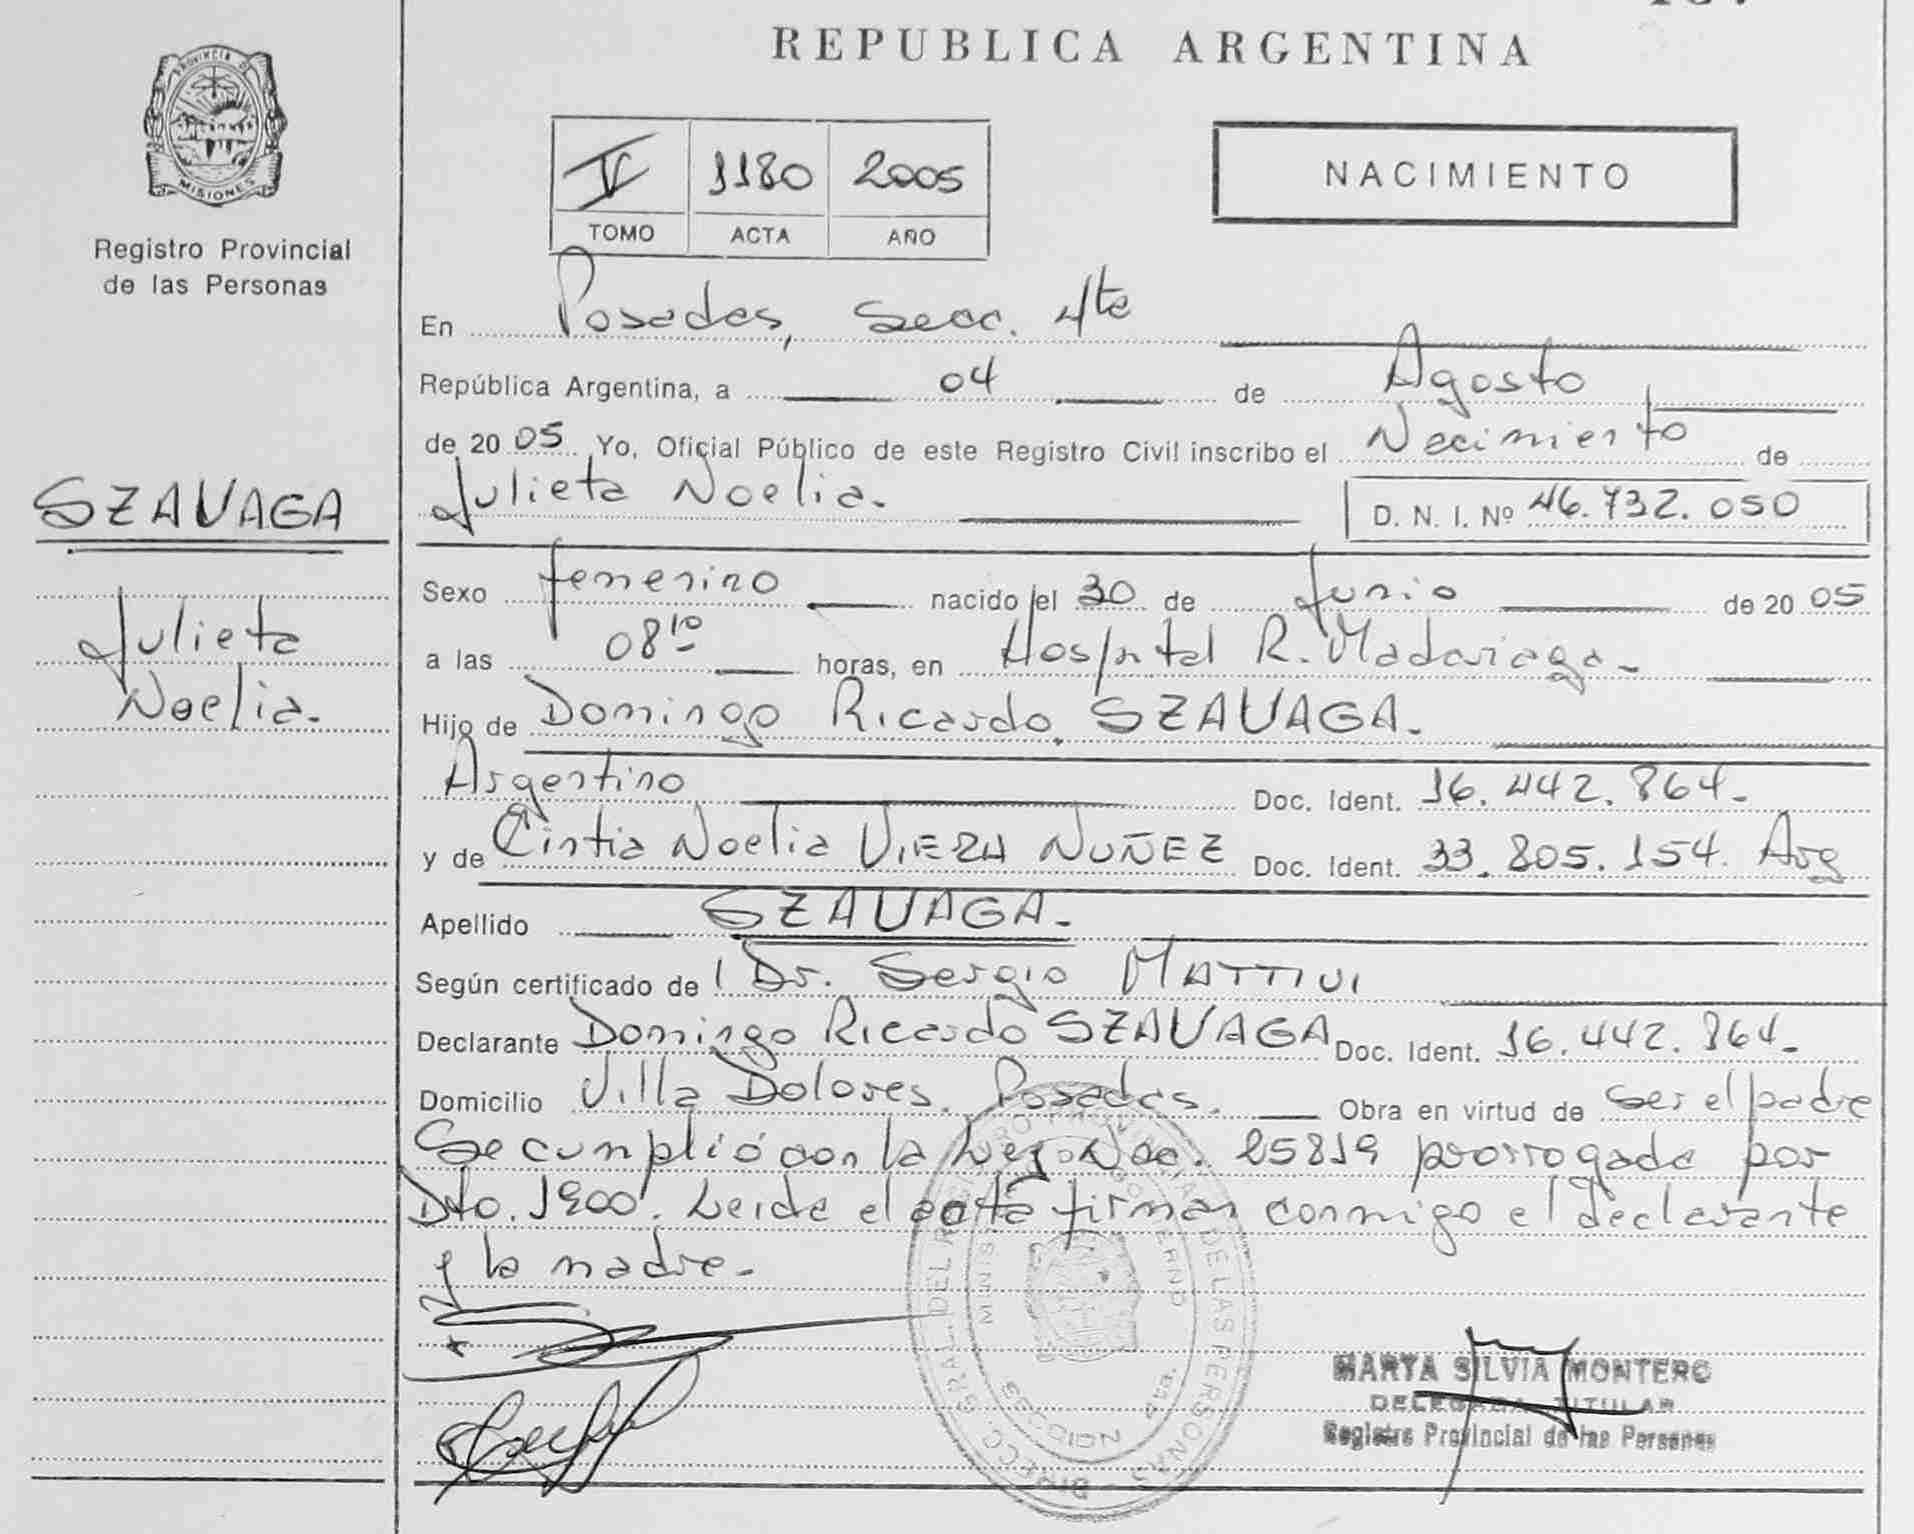 REPUBLICA ARGENTINA
PROVINCIA DE
MISIONES
Registro Provincial
de las Personas
IV 1180 2005
TOMO ACTA AÑO
NACIMIENTO
En Posadas, Secc. 4ta
República Argentina, a 04 de Agosto
de 2005 Yo, Oficial Público de este Registro Civil inscribo el Nacimiento de
Julieta Noelia. D. N. I. Nº 46.732.050
SZAVAGA
Julieta
Noelia.
Sexo femenino nacido el 30 de Junio de 2005
a las 08¹⁰ horas, en Hospital R. Madariaga-
Hijo de Domingo Ricardo SZAVAGA.
Argentino Doc. Ident. 16.442.864-
y de Cintia Noelia VIERA NUÑEZ Doc. Ident. 33.805.154. Arg
Apellido SZAVAGA-
Según certificado de Dr. Sergio MATTIVI
Declarante Domingo Ricardo SZAVAGA Doc. Ident. 16.442.864-
Domicilio Villa Dolores. Posadas. Obra en virtud de ser el padre
Se cumplió con la Ley Nac. 25819 prorrogada por
Dto. 1900. Leída el acta firman conmigo el declarante
y la madre-
DIREC. GRAL. DEL REGISTRO PROVINCIAL DE LAS PERSONAS
GOBIERNO
SECCION 4ta.
MARTA SILVIA MONTERO
DELEGADA TITULAR
Registro Provincial de las Personas